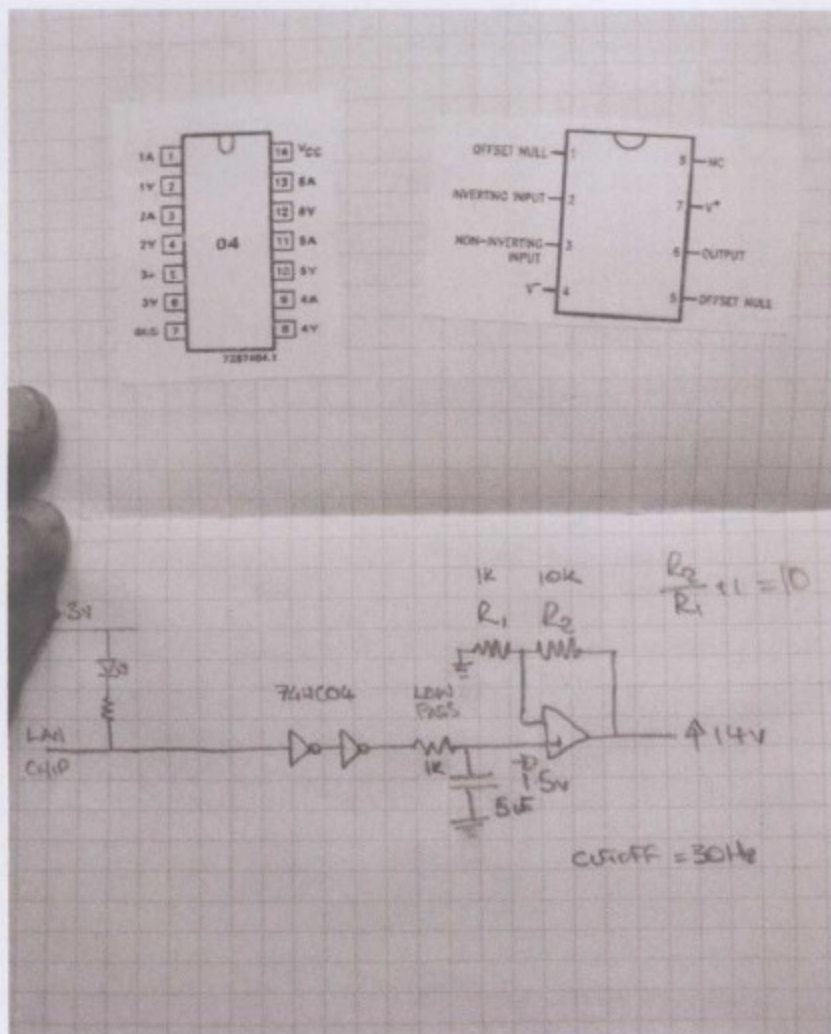 1A 1
1Y 2
2A 3
2Y 4
5
3Y 6
GND 7
04
14 VCC
13 6A
12 6Y
11 5A
10 5Y
9 4A
8 4Y
OFFSET NULL 1
INVERTING INPUT 2
NON-INVERTING 3
INPUT
V- 4
8 NC
7 V+
6 OUTPUT
5 OFFSET NULL
1K 10K
R1 R2
R2
R1 +1 = 10
3V
LAN
CHIP
74HC04
LOW
PASS
1K
5uF
1.5V
14V
CUTOFF = 30Hz